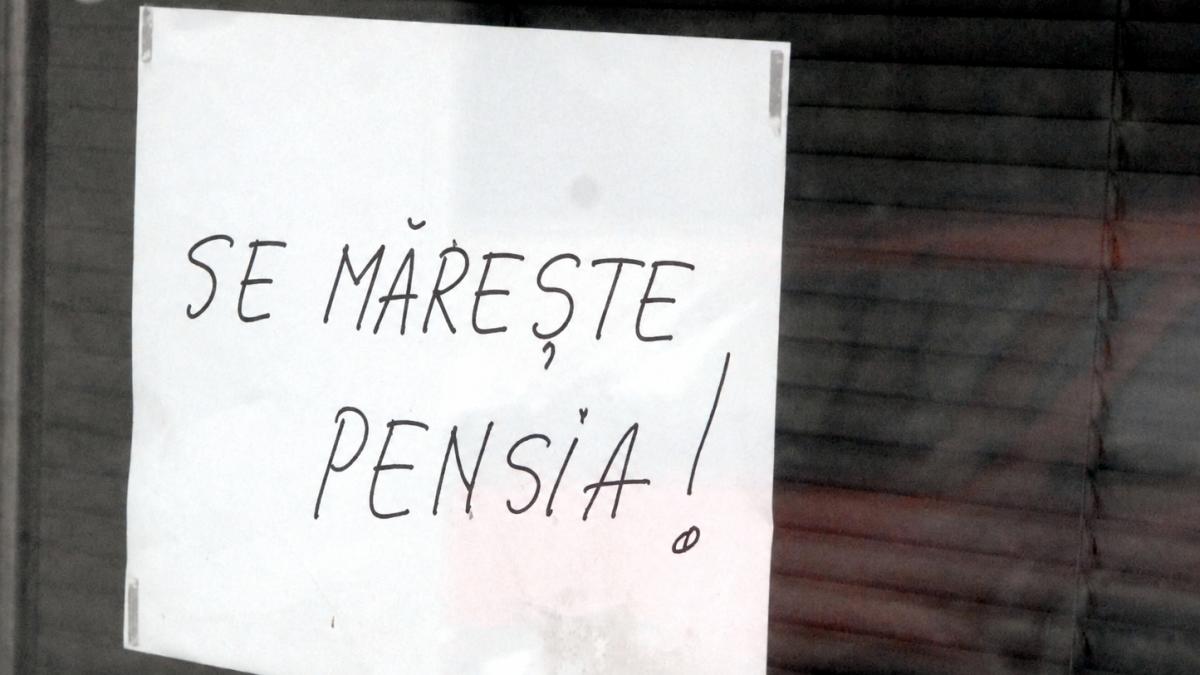 SE MĂREȘTE
PENSIA!